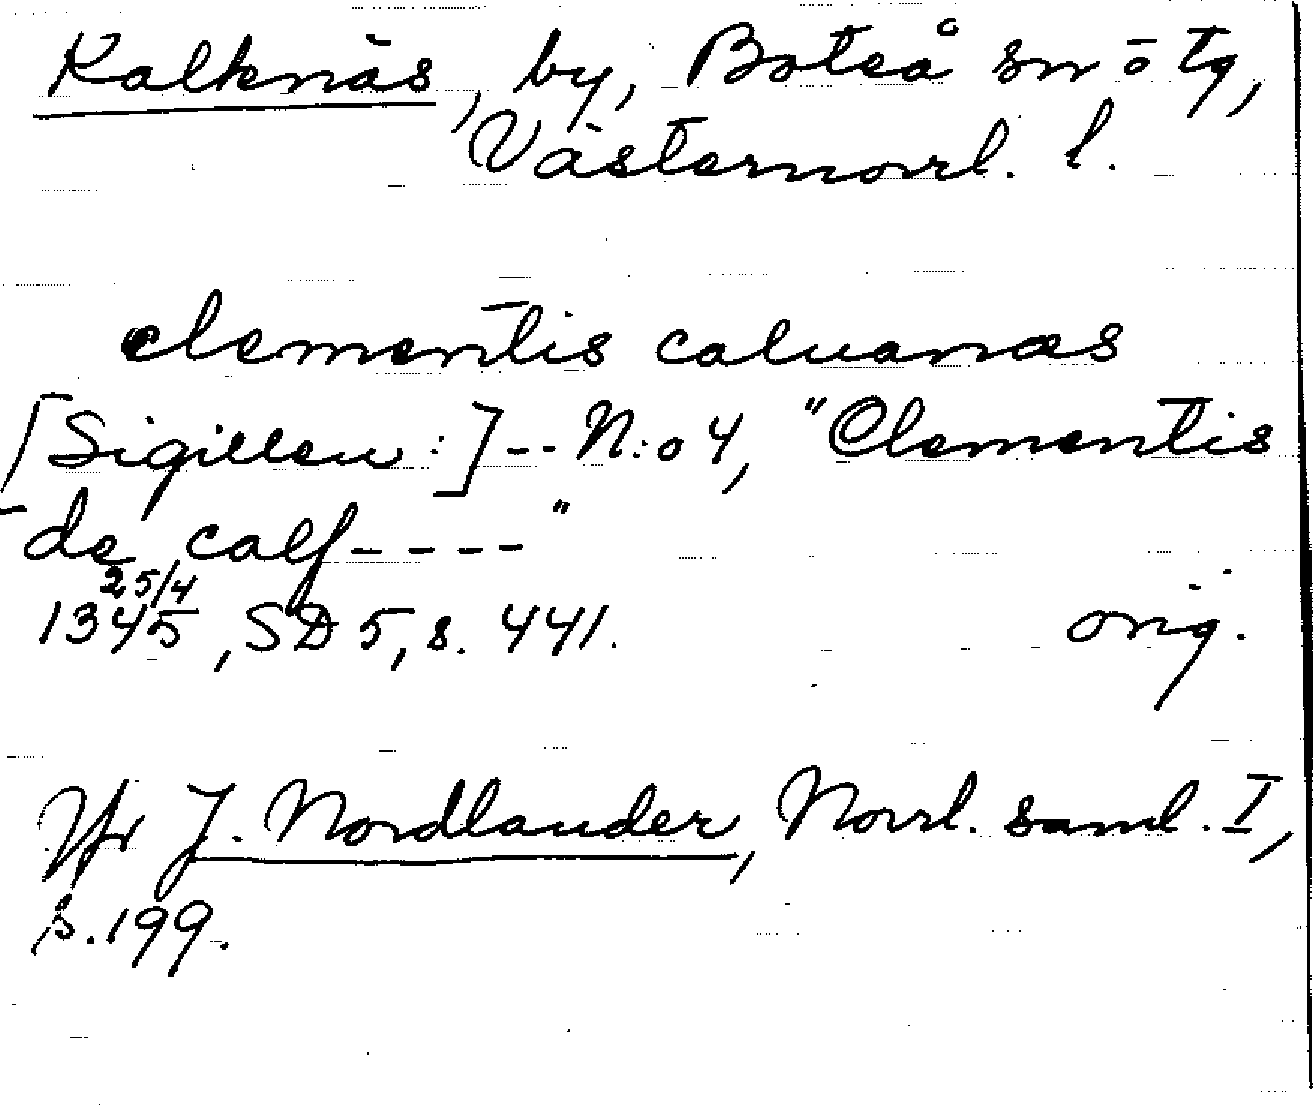 Kalknäs, by, Boteå sn o tg,
Västernorrl. l.
clementis caluanæs
[Sigillen:] -- N:o 4, "Clementis
de calf----"
1345 25/4, SD 5, s. 441. orig.
Jfr J. Nordlander, Norrl. saml. I,
s. 199.